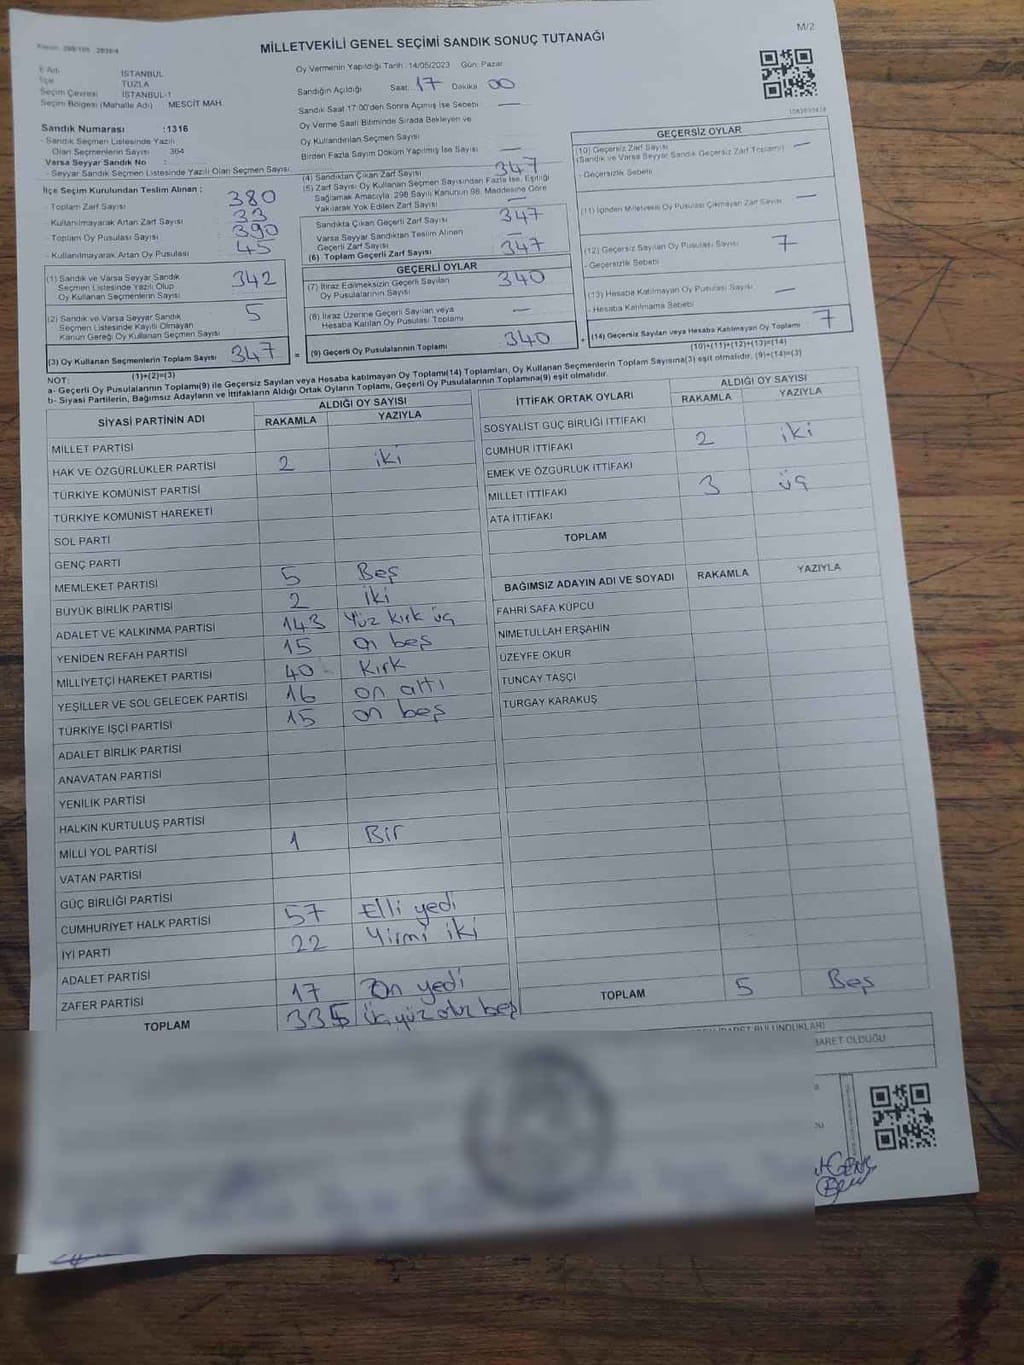 M/2
MİLLETVEKİLİ GENEL SEÇİMİ SANDIK SONUÇ TUTANAĞI
İl Adı İSTANBUL
İlçe TUZLA
Seçim Çevresi İSTANBUL-1
Seçim Bölgesi (Mahalle Adı) MESCİT MAH.
Oy Vermenin Yapıldığı Tarih :14/05/2023 Gün: Pazar
Sandığın Açıldığı Saat: 17 Dakika 00
Sandık Saat 17:00'den Sonra Açılmış İse Sebebi —
Oy Verme Saati Bitiminde Sırada Bekleyen ve
Oy Kullandırılan Seçmen Sayısı
Birden Fazla Sayım Döküm Yapılmış İse Sayısı —
Sandık Numarası :1316
- Sandık Seçmen Listesinde Yazılı
Olan Seçmenlerin Sayısı : 364
Varsa Seyyar Sandık No :
- Seyyar Sandık Seçmen Listesinde Yazılı Olan Seçmen Sayısı:
İlçe Seçim Kurulundan Teslim Alınan :
- Toplam Zarf Sayısı : 380
- Kullanılmayarak Artan Zarf Sayısı : 33
- Toplam Oy Pusulası Sayısı : 390
- Kullanılmayarak Artan Oy Pusulası : 45
(1) Sandık ve Varsa Seyyar Sandık
Seçmen Listesinde Yazılı Olup
Oy Kullanan Seçmenlerin Sayısı 342
(2) Sandık ve Varsa Seyyar Sandık
Seçmen Listesinde Kayıtlı Olmayan
Kanun Gereği Oy Kullanan Seçmen Sayısı 5
(3) Oy Kullanan Seçmenlerin Toplam Sayısı 347 =
(1)+(2)=(3)
(4) Sandıktan Çıkan Zarf Sayısı 347
(5) Zarf Sayısı Oy Kullanan Seçmen Sayısından Fazla İse, Eşitliği
Sağlamak Amacıyla 298 Sayılı Kanunun 98. Maddesine Göre
Yakılarak Yok Edilen Zarf Sayısı —
Sandıkta Çıkan Geçerli Zarf Sayısı 347
Varsa Seyyar Sandıktan Teslim Alınan
Geçerli Zarf Sayısı —
(6) Toplam Geçerli Zarf Sayısı 347
GEÇERLİ OYLAR
(7) İtiraz Edilmeksizin Geçerli Sayılan
Oy Pusulalarının Sayısı 340
(8) İtiraz Üzerine Geçerli Sayılan veya
Hesaba Katılan Oy Pusulası Toplamı —
(9) Geçerli Oy Pusulalarının Toplamı 340 +
GEÇERSİZ OYLAR
(10) Geçersiz Zarf Sayısı
(Sandık ve Varsa Seyyar Sandık Geçersiz Zarf Toplamı) —
- Geçersizlik Sebebi
(11) İçinden Milletvekili Oy Pusulası Çıkmayan Zarf Sayısı —
(12) Geçersiz Sayılan Oy Pusulası Sayısı 7
- Geçersizlik Sebebi
(13) Hesaba Katılmayan Oy Pusulası Sayısı —
- Hesaba Katılmama Sebebi
(14) Geçersiz Sayılan veya Hesaba Katılmayan Oy Toplamı 7
(10)+(11)+(12)+(13)=(14)
NOT:
a- Geçerli Oy Pusulalarının Toplamı(9) ile Geçersiz Sayılan veya Hesaba katılmayan Oy Toplamı(14) Toplamları, Oy Kullanan Seçmenlerin Toplam Sayısına(3) eşit olmalıdır. (9)+(14)=(3)
b- Siyasi Partilerin, Bağımsız Adayların ve İttifakların Aldığı Ortak Oyların Toplamı, Geçerli Oy Pusulalarının Toplamına(9) eşit olmalıdır.
SİYASİ PARTİNİN ADI ALDIĞI OY SAYISI
RAKAMLA YAZIYLA
MİLLET PARTİSİ
HAK VE ÖZGÜRLÜKLER PARTİSİ 2 iki
TÜRKİYE KOMÜNİST PARTİSİ
TÜRKİYE KOMÜNİST HAREKETİ
SOL PARTİ
GENÇ PARTİ
MEMLEKET PARTİSİ 5 Beş
BÜYÜK BİRLİK PARTİSİ 2 iki
ADALET VE KALKINMA PARTİSİ 143 Yüz kırk üç
YENİDEN REFAH PARTİSİ 15 on beş
MİLLİYETÇİ HAREKET PARTİSİ 40 Kırk
YEŞİLLER VE SOL GELECEK PARTİSİ 16 on altı
TÜRKİYE İŞÇİ PARTİSİ 15 on beş
ADALET BİRLİK PARTİSİ
ANAVATAN PARTİSİ
YENİLİK PARTİSİ
HALKIN KURTULUŞ PARTİSİ
MİLLİ YOL PARTİSİ 1 Bir
VATAN PARTİSİ
GÜÇ BİRLİĞİ PARTİSİ
CUMHURİYET HALK PARTİSİ 57 Elli yedi
İYİ PARTİ 22 Yirmi iki
ADALET PARTİSİ
ZAFER PARTİSİ 17 On yedi
TOPLAM 335
İTTİFAK ORTAK OYLARI ALDIĞI OY SAYISI
RAKAMLA YAZIYLA
SOSYALİST GÜÇ BİRLİĞİ İTTİFAKI
CUMHUR İTTİFAKI 2 iki
EMEK VE ÖZGÜRLÜK İTTİFAKI
MİLLET İTTİFAKI 3 üç
ATA İTTİFAKI
TOPLAM
BAĞIMSIZ ADAYIN ADI VE SOYADI RAKAMLA YAZIYLA
FAHRİ SAFA KÜPCÜ
NİMETULLAH ERŞAHİN
ÜZEYFE OKUR
TUNCAY TAŞÇI
TURGAY KARAKUŞ
TOPLAM 5 Beş
BARET OLDUĞU